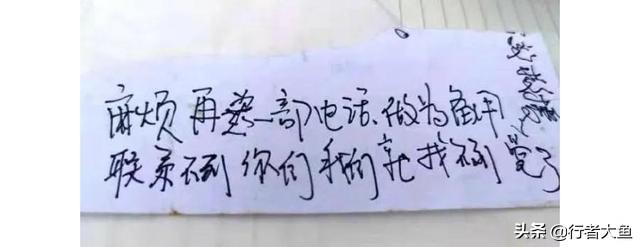 麻烦再装一部电话、做为备用
联系不到你们我们就找不到党了
头条 @行者大鱼